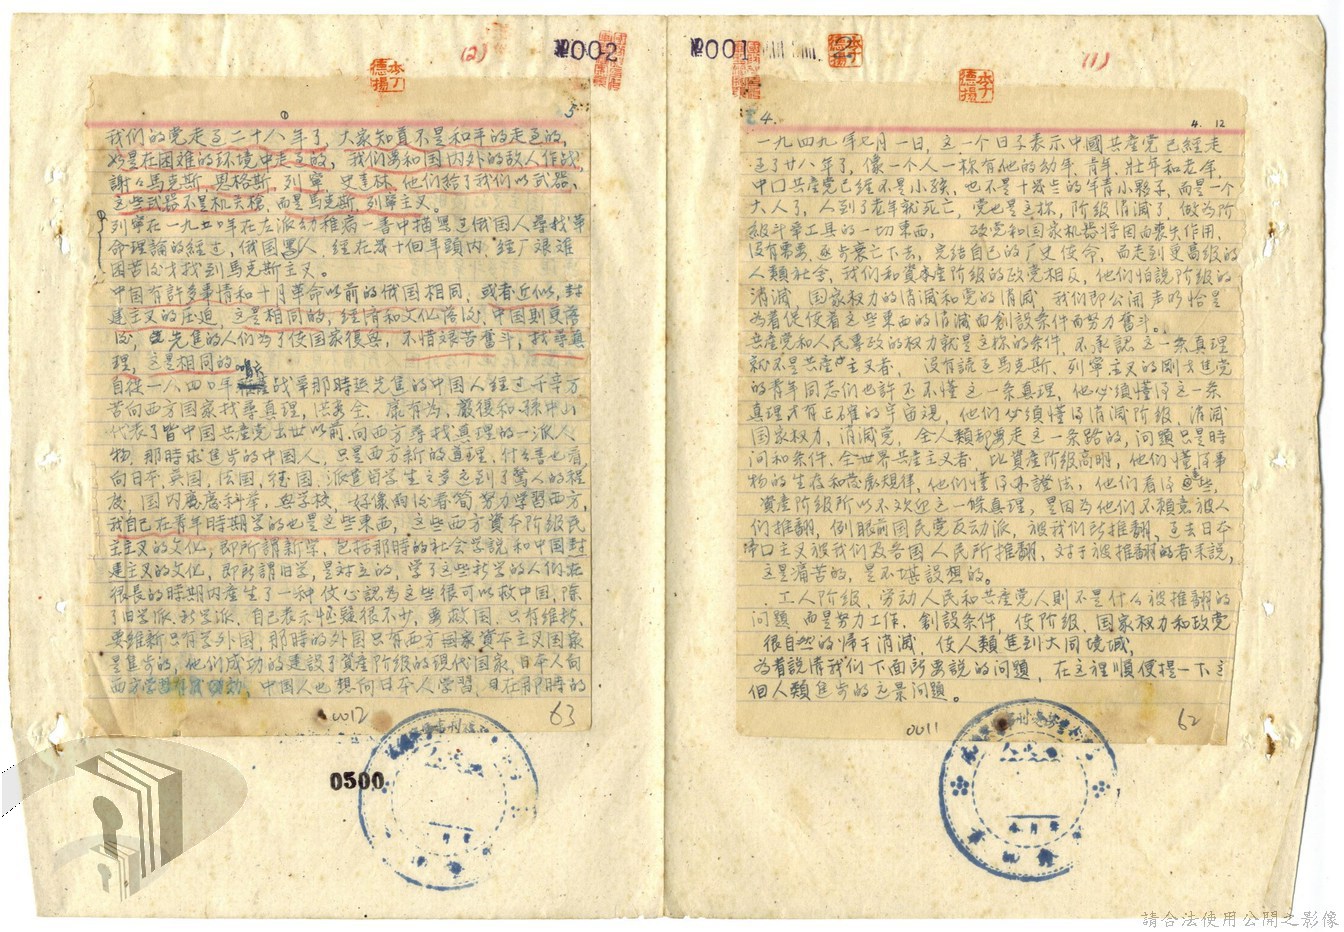 (1)
№001
李丁德揚
李丁德揚
4.
4. 12
一九四九年七月一日，这一个日子表示中國共產党已經走
过了廿八年了，像一个人一様有他的幼年，青年，壮年和老年，
中口共產党已經不是小孩，也不是十幾岁的年青小夥子，而是一个
大人了，人到了老年就死亡，党也是这样，阶級消滅了，做为阶
級斗争工具的一切東西，政党和国家机器将因而喪失作用，
没有需要，逐步衰亡下去，完结自己的厂史使命，而走到更高級的
人類社会，我们和資本產阶級的政党相反，他们怕説阶級的
消滅，国家权力的消滅和党的消滅，我们即公開声明恰是
為着促使着这些東西的消滅而創設条件而努力奮斗。
共產党和人民專政的权力就是这样的条件，不承認这一条真理
就不是共產主义者，没有読过馬克斯、列寧主义的剛才進党
的青年同志们也許还不懂这一条真理，他必须懂得这一条
真理才有正確的宇宙观，他们必须懂得消滅阶級，消滅
国家权力，消滅党，全人類都要走这一条路的，问題只是時
间和条件，全世界共產主义者，比資產阶級高明，他们懂得事
物的生存和発展規律，他们懂得
資產阶級所以不欢迎这一條真理，是因為他们不願意被人
们推翻，例眼前国民党反动派，被我们所推翻，过去日本
帝口主义被我们及各国人民所推翻，对于被推翻的者来説，
这是痛苦的，是不堪設想的。
工人阶級，劳动人民和共產党人則不是什么被推翻的
问題，而是努力工作，創設条件，使阶級、国家权力和政党
很自然的帰于消滅，使人類進到大同境域，
為着説清我们下面所要説的问題，在这裡順便提一下这
個人類進步的远景问題。
0011
62
(2)
№002
李丁德揚
5
我们的党走过二十八年了，大家知真不是和平的走过的，
妙是在困难的环境中走过的，我们要和国内外的敌人作战，
謝々馬克斯，恩格斯，列寧，史達林，他们給了我们以武器，
这些武器不是机关槍，而是馬克斯，列寧主义。
列寧在一九二〇年在左派幼稚病一書中描写过俄国人尋找革
命理論的經过，俄国人，經在幾十個年頭内，經厂艰难
困苦後才找到馬克斯主义。
中国有許多事情和十月革命以前的俄国相同，或者近似，封
建主义的压迫，这是相同的，經濟和文化落後，中国則更落
後，先進的人们為了使国家復興，不惜艰苦奮斗，找尋真
理，这是相同的。
自從一八四〇年战争那時起先進的中国人經过千辛万
苦向西方国家找尋真理，洪秀全、康有為，嚴復和孫中山
代表了皆中国共產党出世以前，向西方尋找真理的一派人
物，那時求進步的中国人，只是西方新的真理，什么書也看，
向日本，英国，法国，德国，派遣留学生之多达到了驚人的程
度，国内廢廢科举，興学校，好像雨後春筍，努力学習西方，
我自己在青年時期学的也是这些東西，这些西方資本阶級民
主主义的文化，即所謂新学，包括那時的社会学説和中国封
建主义的文化，即所謂旧学，是対立的，学了这些新学的人们在
很長的時期内産生了一种仗心認為这些很可以救中国，除
了旧学派，新学派，自己表示怀疑很不少，要救国，只有維新，
要維新只有学外国，那時的外国只有西方国家資本主义国家
是進步的，他们成功的建設了資產阶級的現代国家，日本人向
西方学習有成功効，中国人也想向日本人学習，
0012
63
0500
請合法使用公開之影像